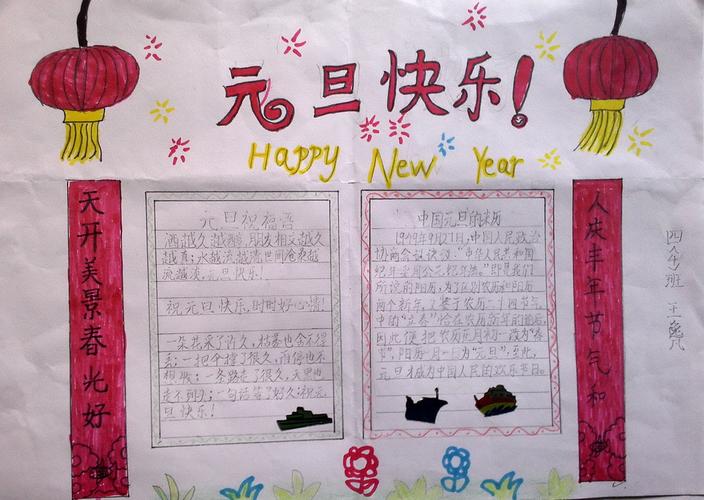 元旦快乐！
Happy New Year
天开美景春光好
元旦祝福语
酒越久越醇，朋友相交越久
越真；水越流越清世间沧桑越
流越淡。元旦快乐！
祝元旦快乐，时时好心情！
一朵花采了许久，枯萎也舍不得
丢；一把伞撑了很久，雨停也不
想收；一条路走了很久，天黑也
走不到头；一句话等了好久：祝元
旦快乐！
中国元旦的来历
1949年9月27日，中国人民政治
协商会议决议："中华人民共和国
纪年采用公元纪年法。"即是我们
所说的阳历，为了区别农历和阳历
两个新年，又鉴于农历二十四节气
中的"立春"恰在农历新年的前后，
因此便把农历正月初一改为"春
节"，阳历一月一日为"元旦"，至此，
元旦才成为中国人民的欢乐节日。
人庆丰年节气和
四 班 王